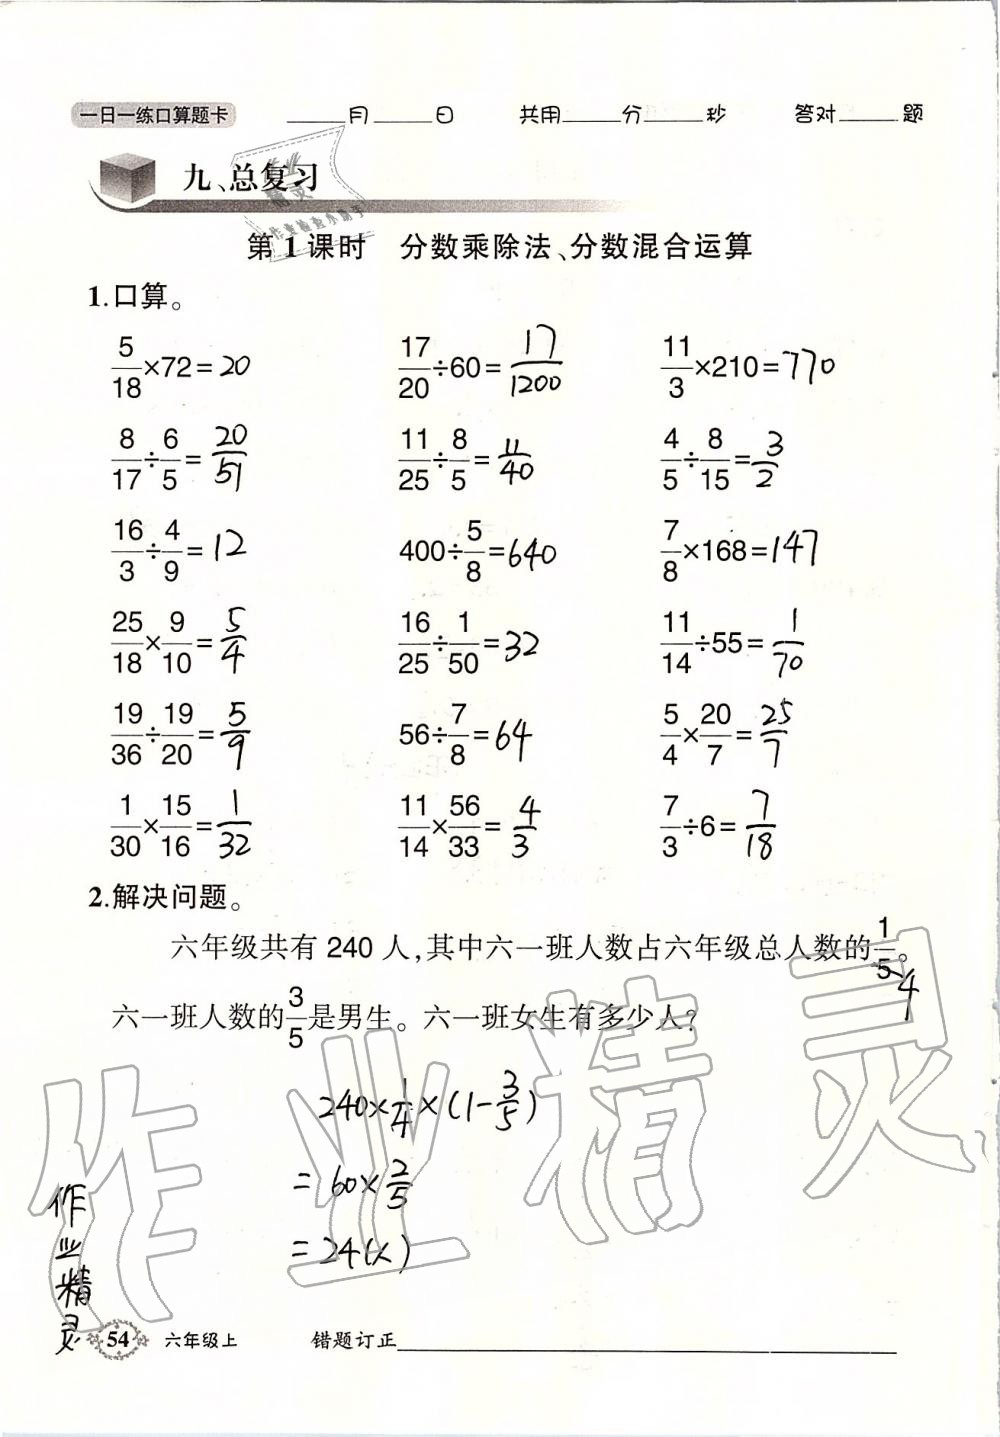 一日一练口算题卡 ____月____日 共用____分____秒 答对____题
九、总复习
第1课时 分数乘除法、分数混合运算
1.口算。
5/18×72=20 17/20÷60=17/1200 11/3×210=770
8/17÷6/5=20/51 11/25÷8/5=11/40 4/5÷8/15=3/2
16/3÷4/9=12 400÷5/8=640 7/8×168=147
25/18×9/10=5/4 16/25÷1/50=32 11/14÷55=1/70
19/36÷19/20=5/9 56÷7/8=64 5/4×20/7=25/7
1/30×15/16=1/32 11/14×56/33=4/3 7/3÷6=7/18
2.解决问题。
六年级共有240人,其中六一班人数占六年级总人数的1/5。
4
六一班人数的3/5是男生。六一班女生有多少人?
240×1/4×(1-3/5)
=60×2/5
=24(人)
作业精灵
作业精灵
作业精灵
作业检查小助手
54 六年级上 错题订正____